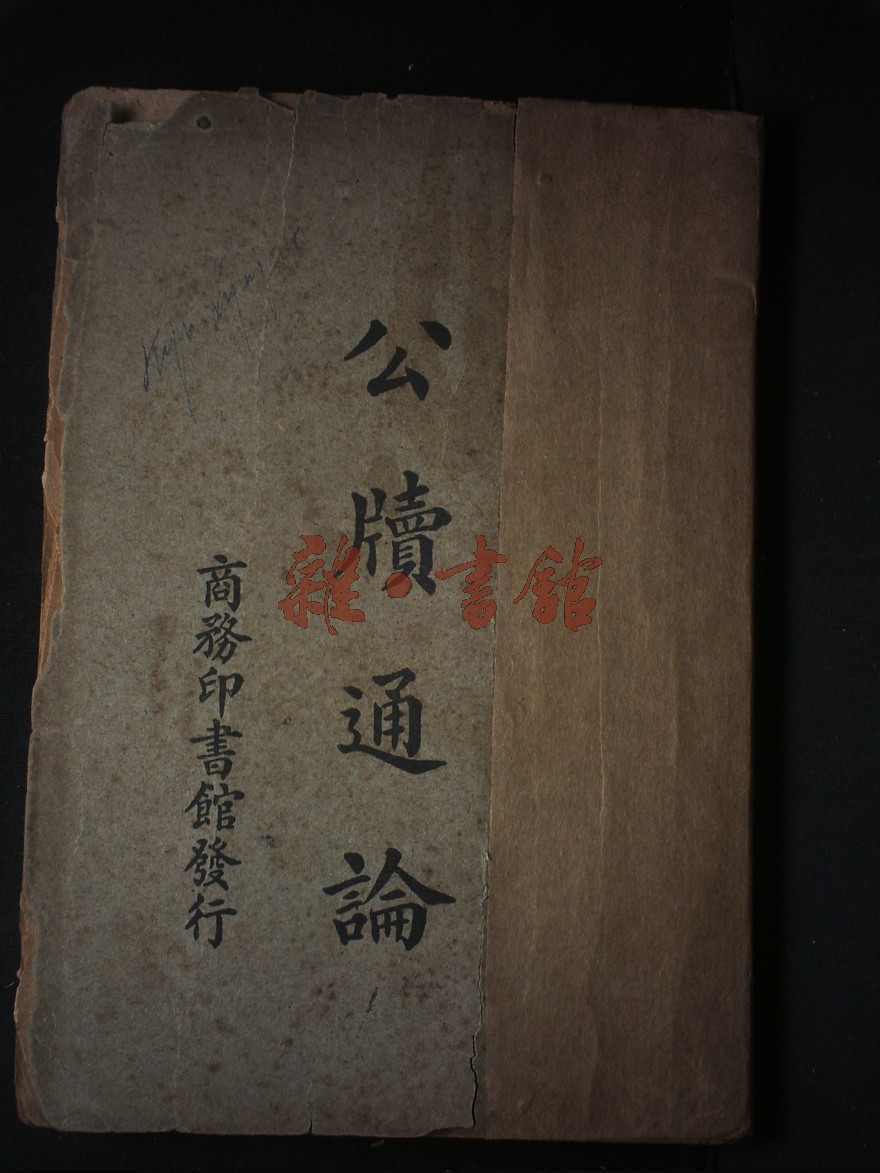 公牘通論
商務印書館發行
雜·書館